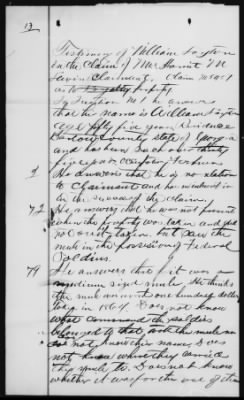 13
Testimony of William Layton
in the Claim of Mrs Harriet M
Claimant. Claim No
as to Loyalty property
To Question No 1 he answers
that he name is William Layton
age fifty five years Residence
Bartow County State of Georgia
and has been such over thirty
five years occupation Farmer
2 He answers that he is no relation
to Claimant and no interest in
in the success of the Claim.
72 He answers that he was not present
when the property was taken and did
not see it taken, but saw the
mule in the possession of Federal
Soldiers.
79 He answers that it was a
medium sized mule He thinks
the mule worth one hundred dollars
in 1864. Does not know
what command the soldiers
belonged to that took the mule
does not know their names, Does
not know where they carried
the mule to. Does not know
whether it was for the use of the